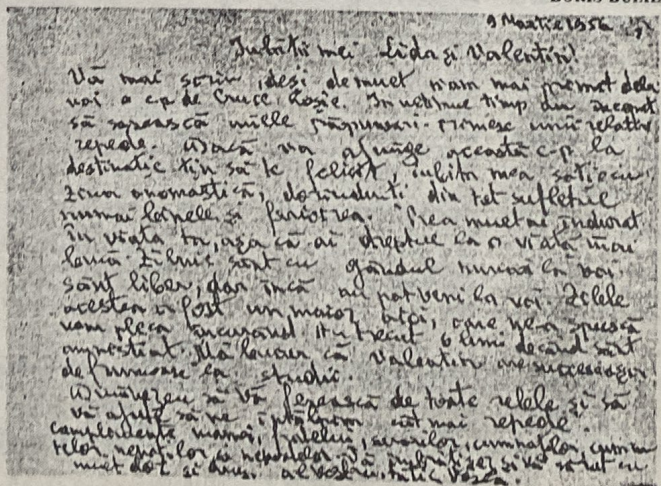 9 Martie 1956
Iubiții mei Lida și Valentin!
Vă mai scriu, deși demult n'am mai primit dela
voi o c.p. de Cruce Roșie. În ultimul timp au început
să sosească unele răspunsuri. Primesc unii relativ
repede. Dacă va ajunge această c.p. la
destinație țin să te felicit, iubita mea soție cu
ziua onomastică, dorindu-ți din tot sufletul
numai binele și fericirea. Prea mult ai îndurat
în viața ta, așa că ai dreptul la o viață mai
bună. Zilnic sunt cu gândul numai la voi.
Sânt liber, dar încă nu pot veni la voi. Zilele
acestea a fost un maior aici, care ne-a spus că
vom pleca în curând. Au trecut 6 luni decând sânt
amnestiat. Mă bucur că Valentin are succese așa
de frumoase la studii.
Dumnezeu să vă ferească de toate relele și să
vă ajute să ne întâlnim cât mai repede.
Complimente mamei, fratelui, surorilor, cumnaților, cumna
telor, nepoților și nepoatelor. Vă îmbrățișez și vă sărut cu
mult dor și drag. al vostru tătic